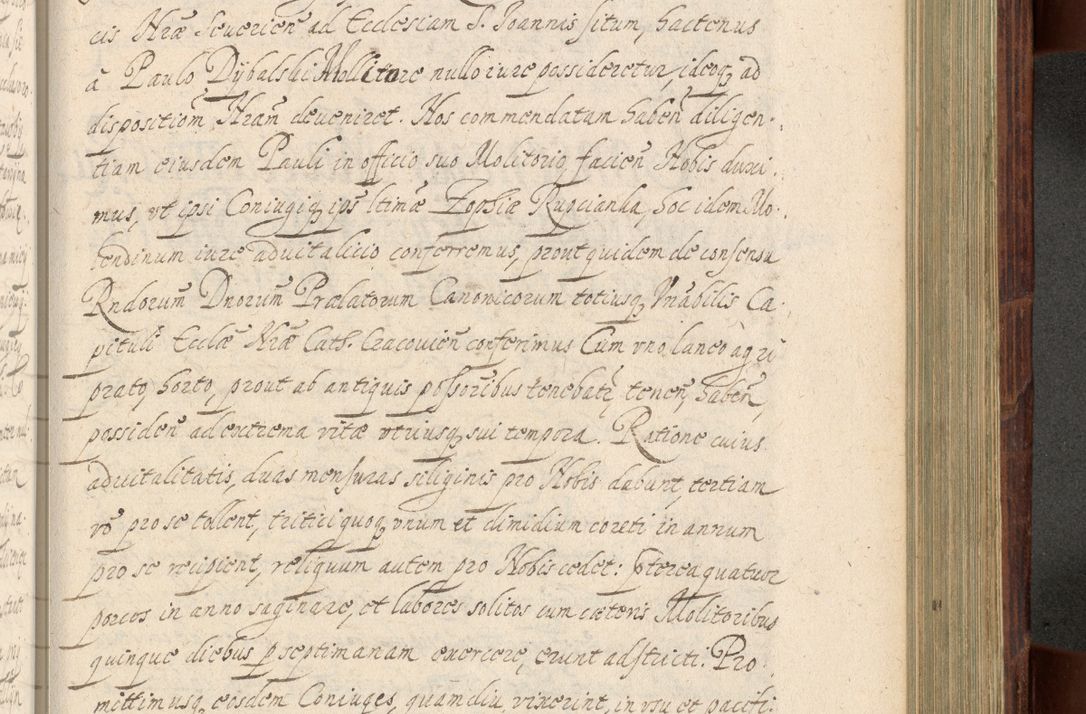 cis Nrǣ Seuerien̄ ad Ecclesiam S. Joannis situm, hactenus
à Paulo Dÿbalski Molitore nullo iure possideretur, ideoq3 ad
dispositiom̄ Nram̄ deueniret. Nos commendatum haben̄ diligen-
tiam eiusdem Pauli in officio suo Molitorio facien̄ Nobis duxi-
mus, vt ipsi Coniugiq3 ips̄ ltimæ Zophiæ Rupcianka, hoc idem Mo-
lendinum iure aduitalicio conferremus, prout quidem de consensu
Rndorum̄ Dnorum̄ Prælatorum Canonicorum totiusq3 Vnābilis Ca-
pituli Ecclǣ Nrǣ Cath. Cracouien̄ conferimus Cum vno laneo agri
prato, horto, prout ab antiquis possorībus tenebatr, tenen̄, haben̄,
possiden̄ ad extrema vitæ vtriusq3 sui tempora. Ratione cuius
aduitalitatis, duas mensuras siliginis pro Nobis dabunt, tertiam
rō pro se tollent, tritici quoq3 vnum et dimidium coreti in annum
pro se recipient, reliquum autem pro Nobis cedet: Pterea quatuor
porcos in anno saginare, et labores solitos cum cæteris Molitoribus
quinque diebus p septimanam exercere, erunt adstricti. Pro-
mittimusq3 eosdem Coniuges, quamdiu vixerint, in vsu et pacifi-